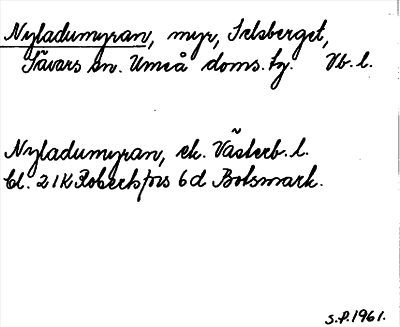 Nyladumyran, myr, Selsberget,
Sävars sn. Umeå doms. tg. Vb. l.
Nyladumyran, ek. Västerb. l.
bl. 21K Robertsfors 6d Botsmark.
S.P. 1961.